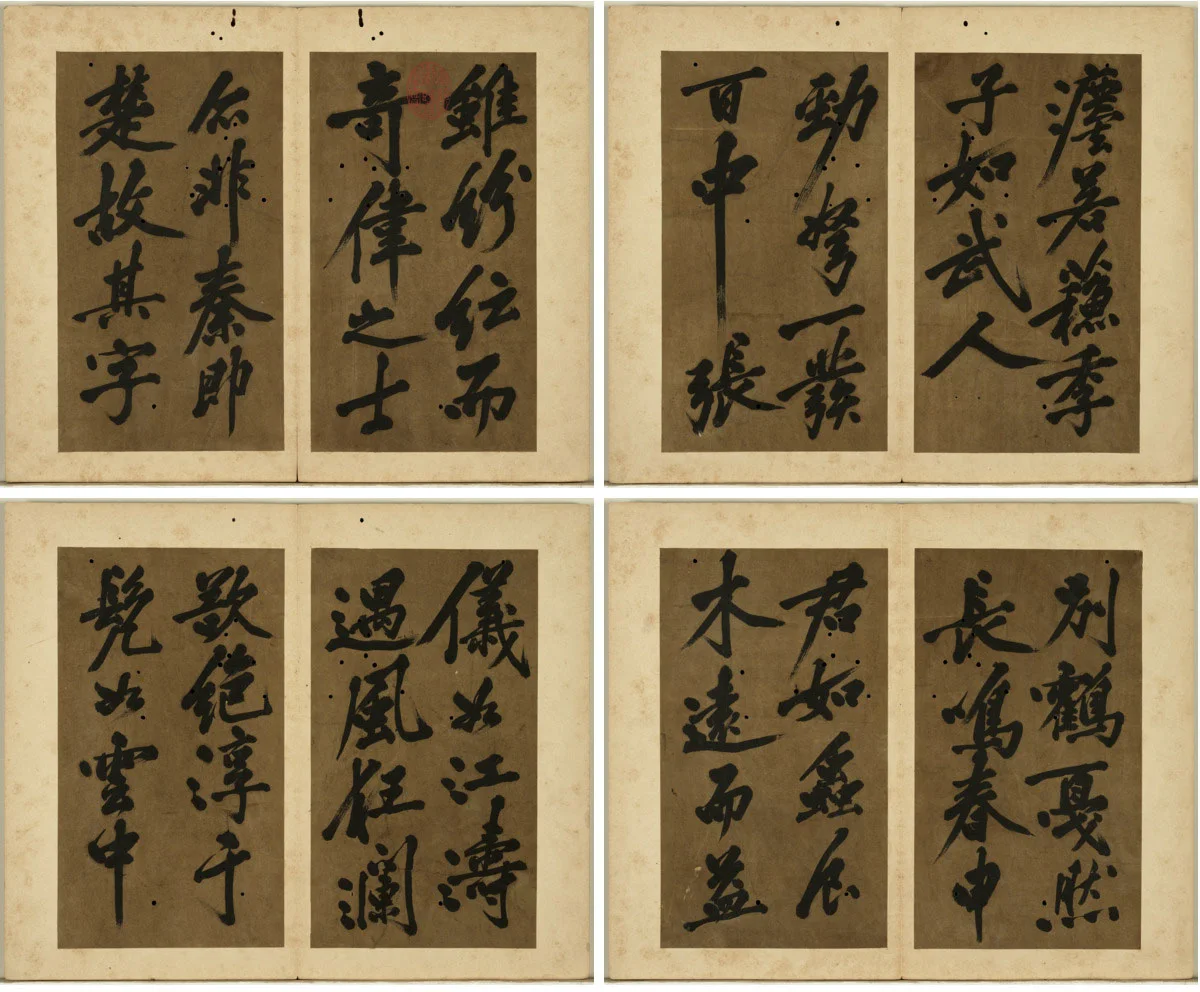 雖紛紜而
奇偉之士
非秦即
楚故其字
若蘓季
子如武人
勁弩一發
百中張
儀如江濤
遇風狂瀾
淳于
髡如雲中
別鶴戛然
長鳴春申
君如
木遠而益